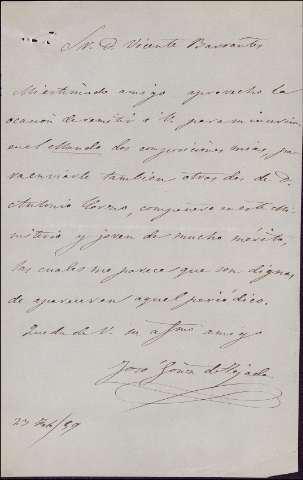 Sr. D. Vicente Barrantes
Mi estimado amigo aprovecho la
ocasion de remitir a V. para su insercion
en el Mundo dos composiciones mias, pa
ra enviarle tambien otras dos de D.
Antonio compañero en este Mi
nisterio y joven de mucho mérito,
las cuales me parece que son dignas
de aparecer en aquel periódico.
Queda de V. su afmo amigo
José Gonz. de Tejada
23 Feb/59